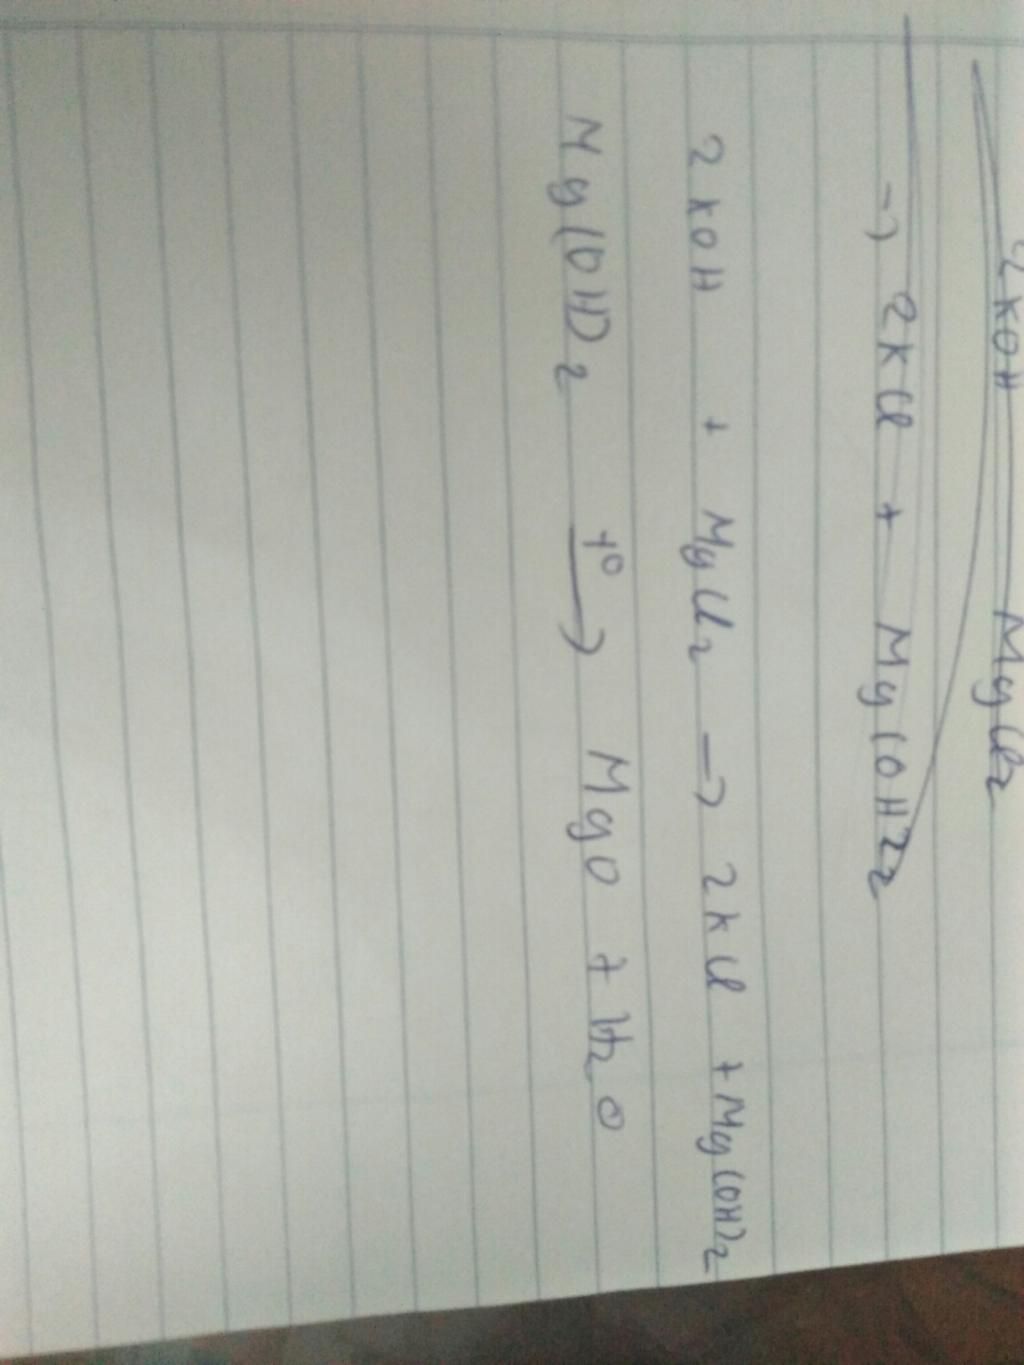 2KOH MgCl2
→ 2KCl + Mg(OH)2
2KOH + MgCl2 → 2KCl + Mg(OH)2
Mg(OH)2 t° → MgO + H2O